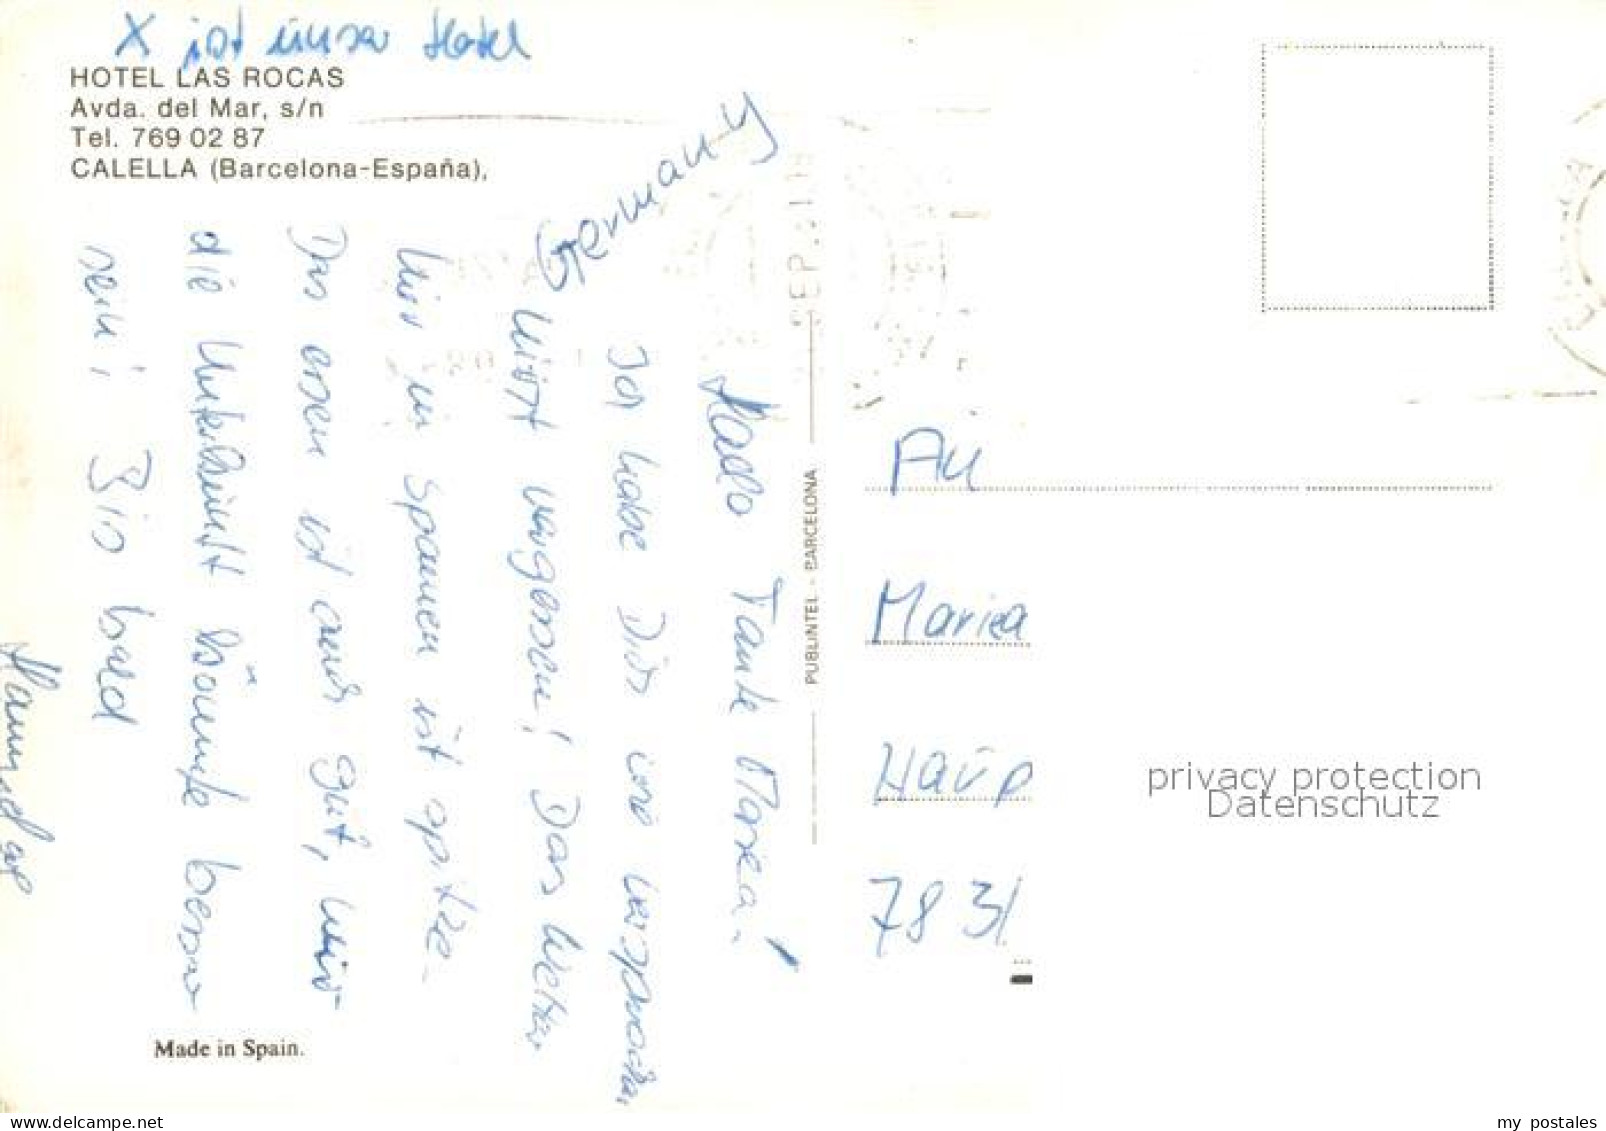 X ist unser Hotel
HOTEL LAS ROCAS
Avda. del Mar, s/n
Tel. 769 02 87
CALELLA (Barcelona-España),
Germany
Hallo Tante Maria!
Ich habe Dich wie versprochen
nicht vergessen! Das Wetter
hier in Spanien ist spitze.
Das essen ist auch gut, nur
die Unterkunft könnte besser
sein! Bis bald
PUBLINTEL - BARCELONA
An
Maria
Haup
7831
privacy protection
Datenschutz
Made in Spain.
my postales